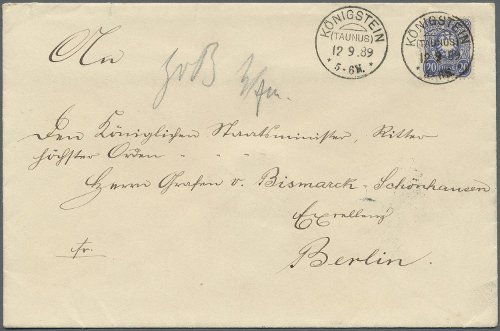 KÖNIGSTEIN
(TAUNUS)
12 9.89
* 5-6N. *
KÖNIGSTEIN
(TAUNUS)
12 9 89
20 20
An
Den Königlichen Staatsminister, Ritter
höchster Orden
Herrn Grafen v. Bismarck-Schönhausen
Exellenz
fr.
Berlin.